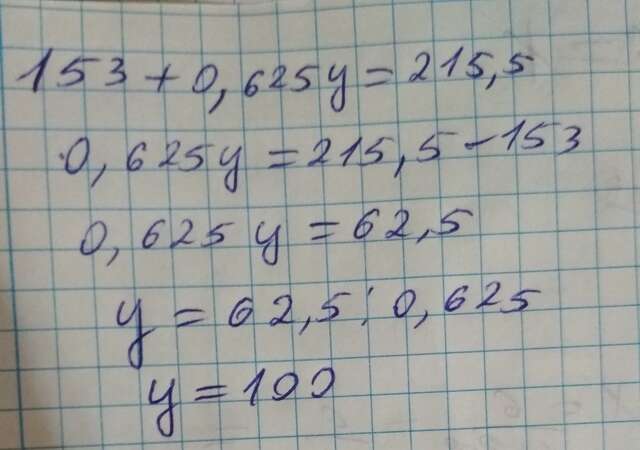 153 + 0,625y = 215,5
0,625y = 215,5 - 153
0,625y = 62,5
y = 62,5 : 0,625
y = 100